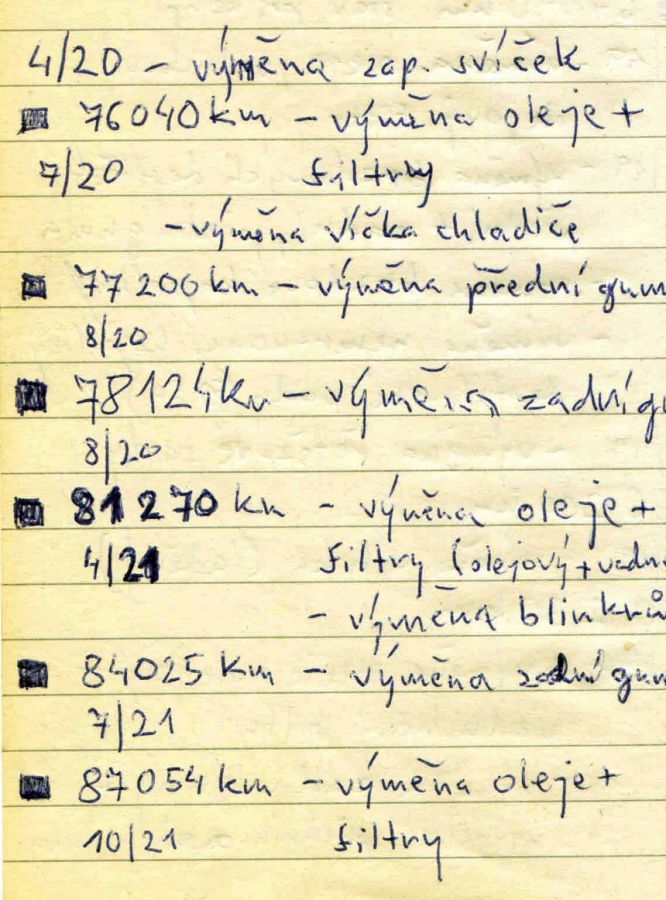 4/20 - výměna zap. svíček
76040 km - výměna oleje +
7/20 filtry
- výměna víčka chladiče
77200 km - výměna přední gum
8/20
78124 km - výměna zadní gu
8/20
81270 km - výměna oleje +
4/21 filtry (olejový + vzdu
- výměna blinkrů
84025 km - výměna zadní gum
7/21
87054 km - výměna oleje +
10/21 filtry